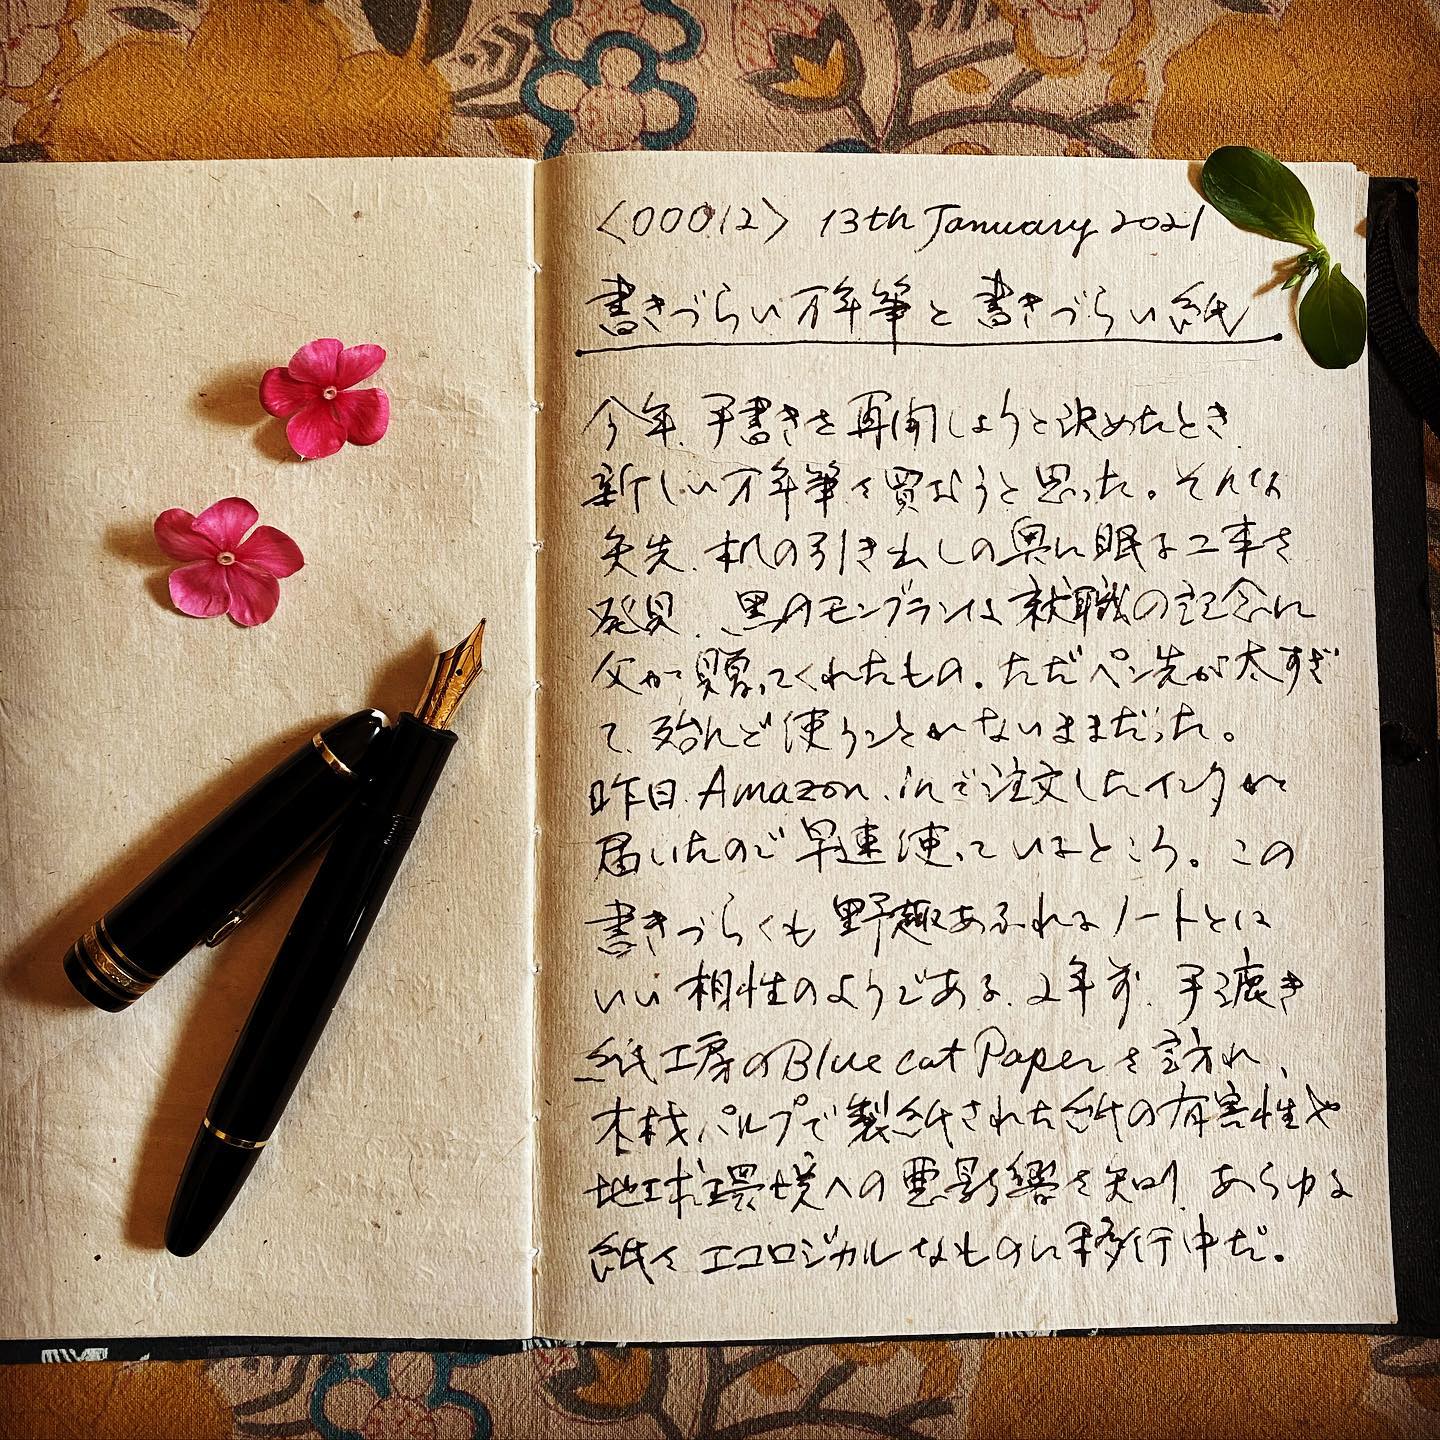 〈00012〉 13th January 2021
書きづらい万年筆と書きづらい紙
今年、手書きを再開しようと決めたとき、
新しい万年筆を買おうと思った。そんな
矢先、机の引き出しの奥に眠る二本を
発見。黒のモンブランは就職の記念に
父が贈ってくれたもの。ただペン先が太すぎ
て、殆んど使うことがないままだった。
昨日、Amazon.inで注文したインクが
届いたので早速使っているところ。この
書きづらくも野趣あふれるノートとは
いい相性のようである。2年前、手漉き
紙工房のBlue cat Paperを訪れ、
木材パルプで製紙された紙の有害性や
地球環境への悪影響を知り、あらゆる
紙をエコロジカルなものに移行中だ。